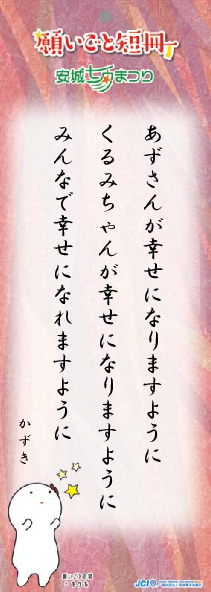 願いごと短冊
安城七夕まつり
あずさんが幸せになりますように
くるみちゃんが幸せになりますように
みんなで幸せになれますように
かずき
JCI